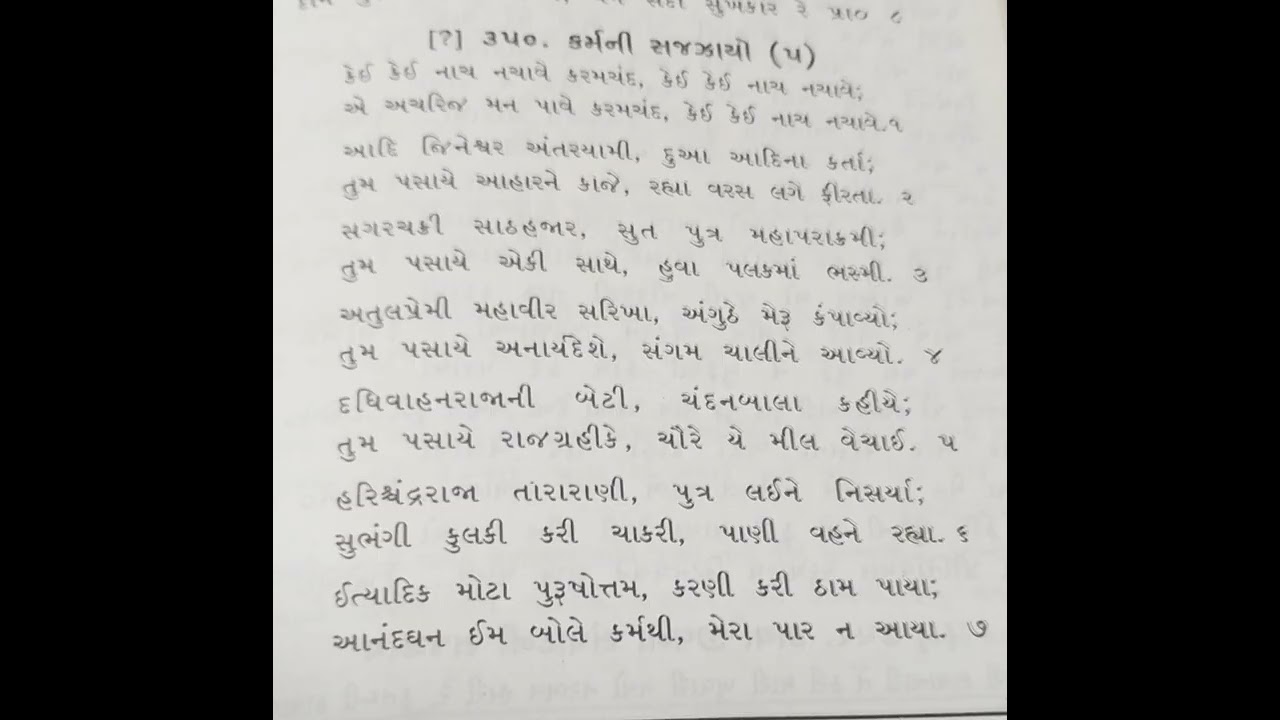 સુખકાર રે પ્રા૦ ૮
[?] ૩૫૦. કર્મની સજઝાયો (૫)
કેઈ કેઈ નાચ નચાવે કરમચંદ, કેઈ કેઈ નાચ નચાવે;
એ અચરિજ મન પાવે કરમચંદ, કેઈ કેઈ નાચ નચાવે.૧
આદિ જિનેશ્વર અંતરયામી, દુઆ આદિના કર્તા;
તુમ પસાયે આહારને કાજે, રહ્યા વરસ લગે ફીરતા. ૨
સગરચક્રી સાઠહજાર, સુત પુત્ર મહાપરાક્રમી;
તુમ પસાયે એકી સાથે, હુવા પલકમાં ભસ્મી. ૩
અતુલપ્રેમી મહાવીર સરિખા, અંગુઠે મેરૂ કંપાવ્યો;
તુમ પસાયે અનાર્યદેશે, સંગમ ચાલીને આવ્યો. ૪
દધિવાહનરાજાની બેટી, ચંદનબાલા કહીયે;
તુમ પસાયે રાજગ્રહીકે, ચૌરે યે મીલ વેચાઈ. ૫
હરિશ્ચંદ્રરાજા તારારાણી, પુત્ર લઈને નિસર્યા;
સુભંગી કુલકી કરી ચાકરી, પાણી વહને રહ્યા. ૬
ઈત્યાદિક મોટા પુરૂષોત્તમ, કરણી કરી ઠામ પાયા;
આનંદઘન ઈમ બોલે કર્મથી, મેરા પાર ન આયા. ૭